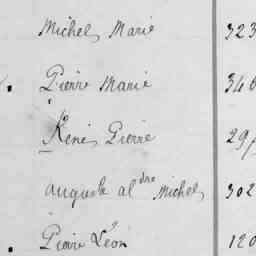 Michel Marie 323
Pierre Marie 346
René Pierre 29
auguste al dre Michel 302
Pierre Léon 120